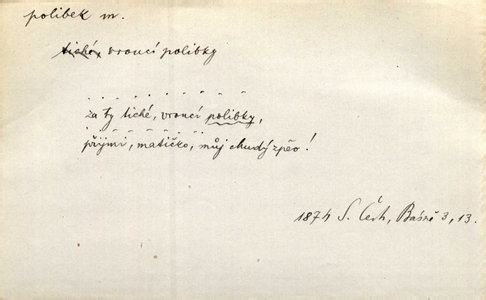 polibek m.
tiché, vroucí polibky
. . . . . . . . . .
za ty tiché, vroucí polibky,
. . . . . . . . . .
přijmi, matičko, můj chudý zpěv!
1874 S. Čech, Básně 3, 13.